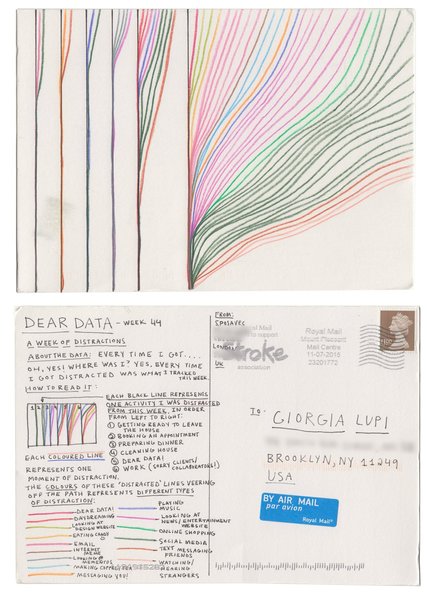 DEAR DATA - WEEK 44
A WEEK OF DISTRACTIONS
ABOUT THE DATA: EVERY TIME I GOT....
OH, YES! WHERE WAS I? YES, EVERY TIME
I GOT DISTRACTED WAS WHAT I TRACKED
THIS WEEK.
HOW TO READ IT:
EACH BLACK LINE REPRESENTS
ONE ACTIVITY I WAS DISTRACTED
FROM THIS WEEK, IN ORDER
FROM LEFT TO RIGHT:
① GETTING READY TO LEAVE
THE HOUSE
② BOOKING AN APPOINTMENT
③ PREPARING DINNER
④ CLEANING HOUSE
⑤ DEAR DATA!
⑥ WORK (SORRY CLIENTS/
COLLABORATORS!)
1 2 3 4 5 6
EACH COLOURED LINE
REPRESENTS ONE
MOMENT OF DISTRACTION.
THE COLOURS OF THESE 'DISTRACTED' LINES VEERING
OFF THE PATH REPRESENTS DIFFERENT TYPES
OF DISTRACTION:
DEAR DATA!
DAYDREAMING
LOOKING AT
DESIGN WEBSITE
EATING CANDY
EMAIL
INTERNET
MEME
LOOKING @
MEMENTOS
MAKING COFFEE/TEA
MESSAGING YOU!
PLAYING
MUSIC
LOOKING AT
NEWS/ENTERTAINMENT
WEBSITE
ONLINE SHOPPING
SOCIAL MEDIA
TEXT MESSAGING
FRIENDS
WATCHING/
HEARING
STRANGERS
FROM:
SPOSAVEC
LONDON
UK
al Mail
to support
Stroke
association
Royal Mail
Mount Pleasant
Mail Centre
11-07-2015
23201772
TO:
GIORGIA LUPI
BROOKLYN, NY 11249
USA
BY AIR MAIL
par avion
Royal Mail